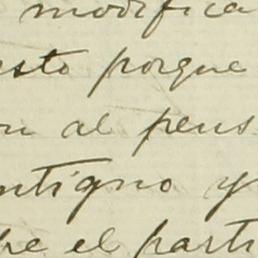 modifica
esto porque
on al pens
ntigno y
bre el parti